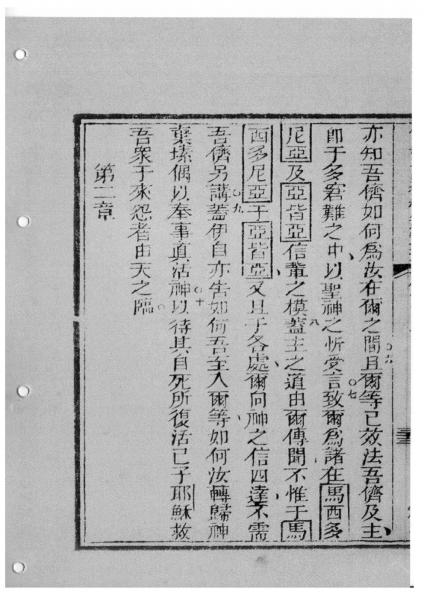 亦知吾儕如何爲汝在爾之間且爾等已效法吾儕及主
〇六
即于多窘難之中以聖神之忻受言致爾爲諸在馬西多
〇七
尼亞及亞皆亞信輩之模蓋主之道由爾傳聞不惟于馬
八
西多尼亞于亞皆亞又且于各處爾向神之信四達不需
吾儕另講蓋伊自亦告如何吾至入爾等如何汝轉歸神
〇九
棄塐偶以奉事真活神以待其自死所復活已子耶穌救
〇十
吾衆于來怨者由天之臨
第二章